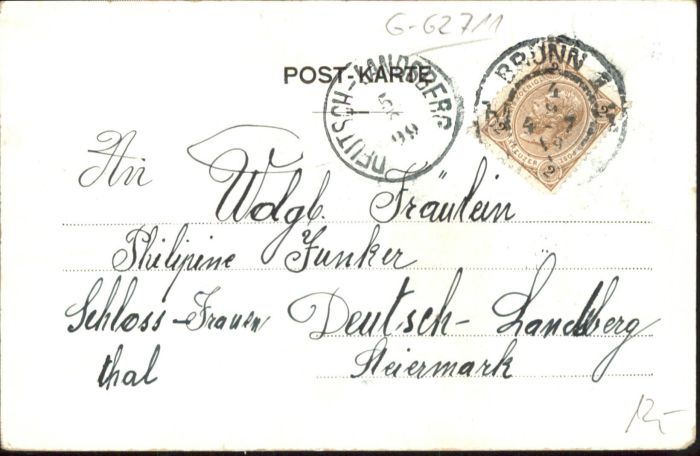 G-62711
POST-KARTE
DEUTSCH-LANDSBERG
99
BRÜNN 1
An
Wolgb. Fräulein
Philipine Junker
Schloss-Frauen Deutsch-Landsberg
thal Steiermark
12,-